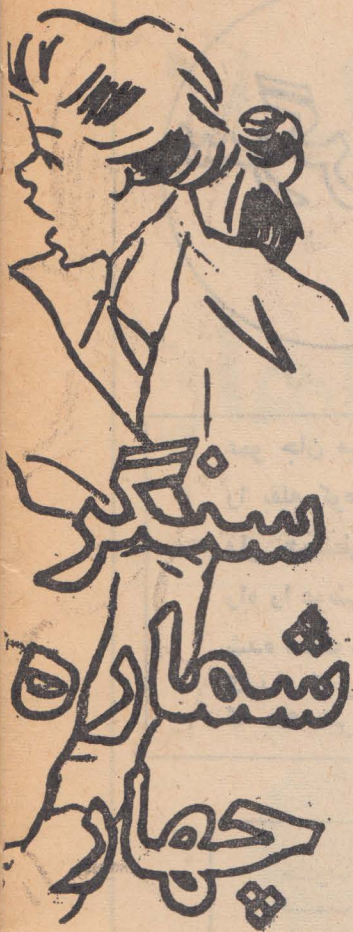 سنگر
شماره
چهار